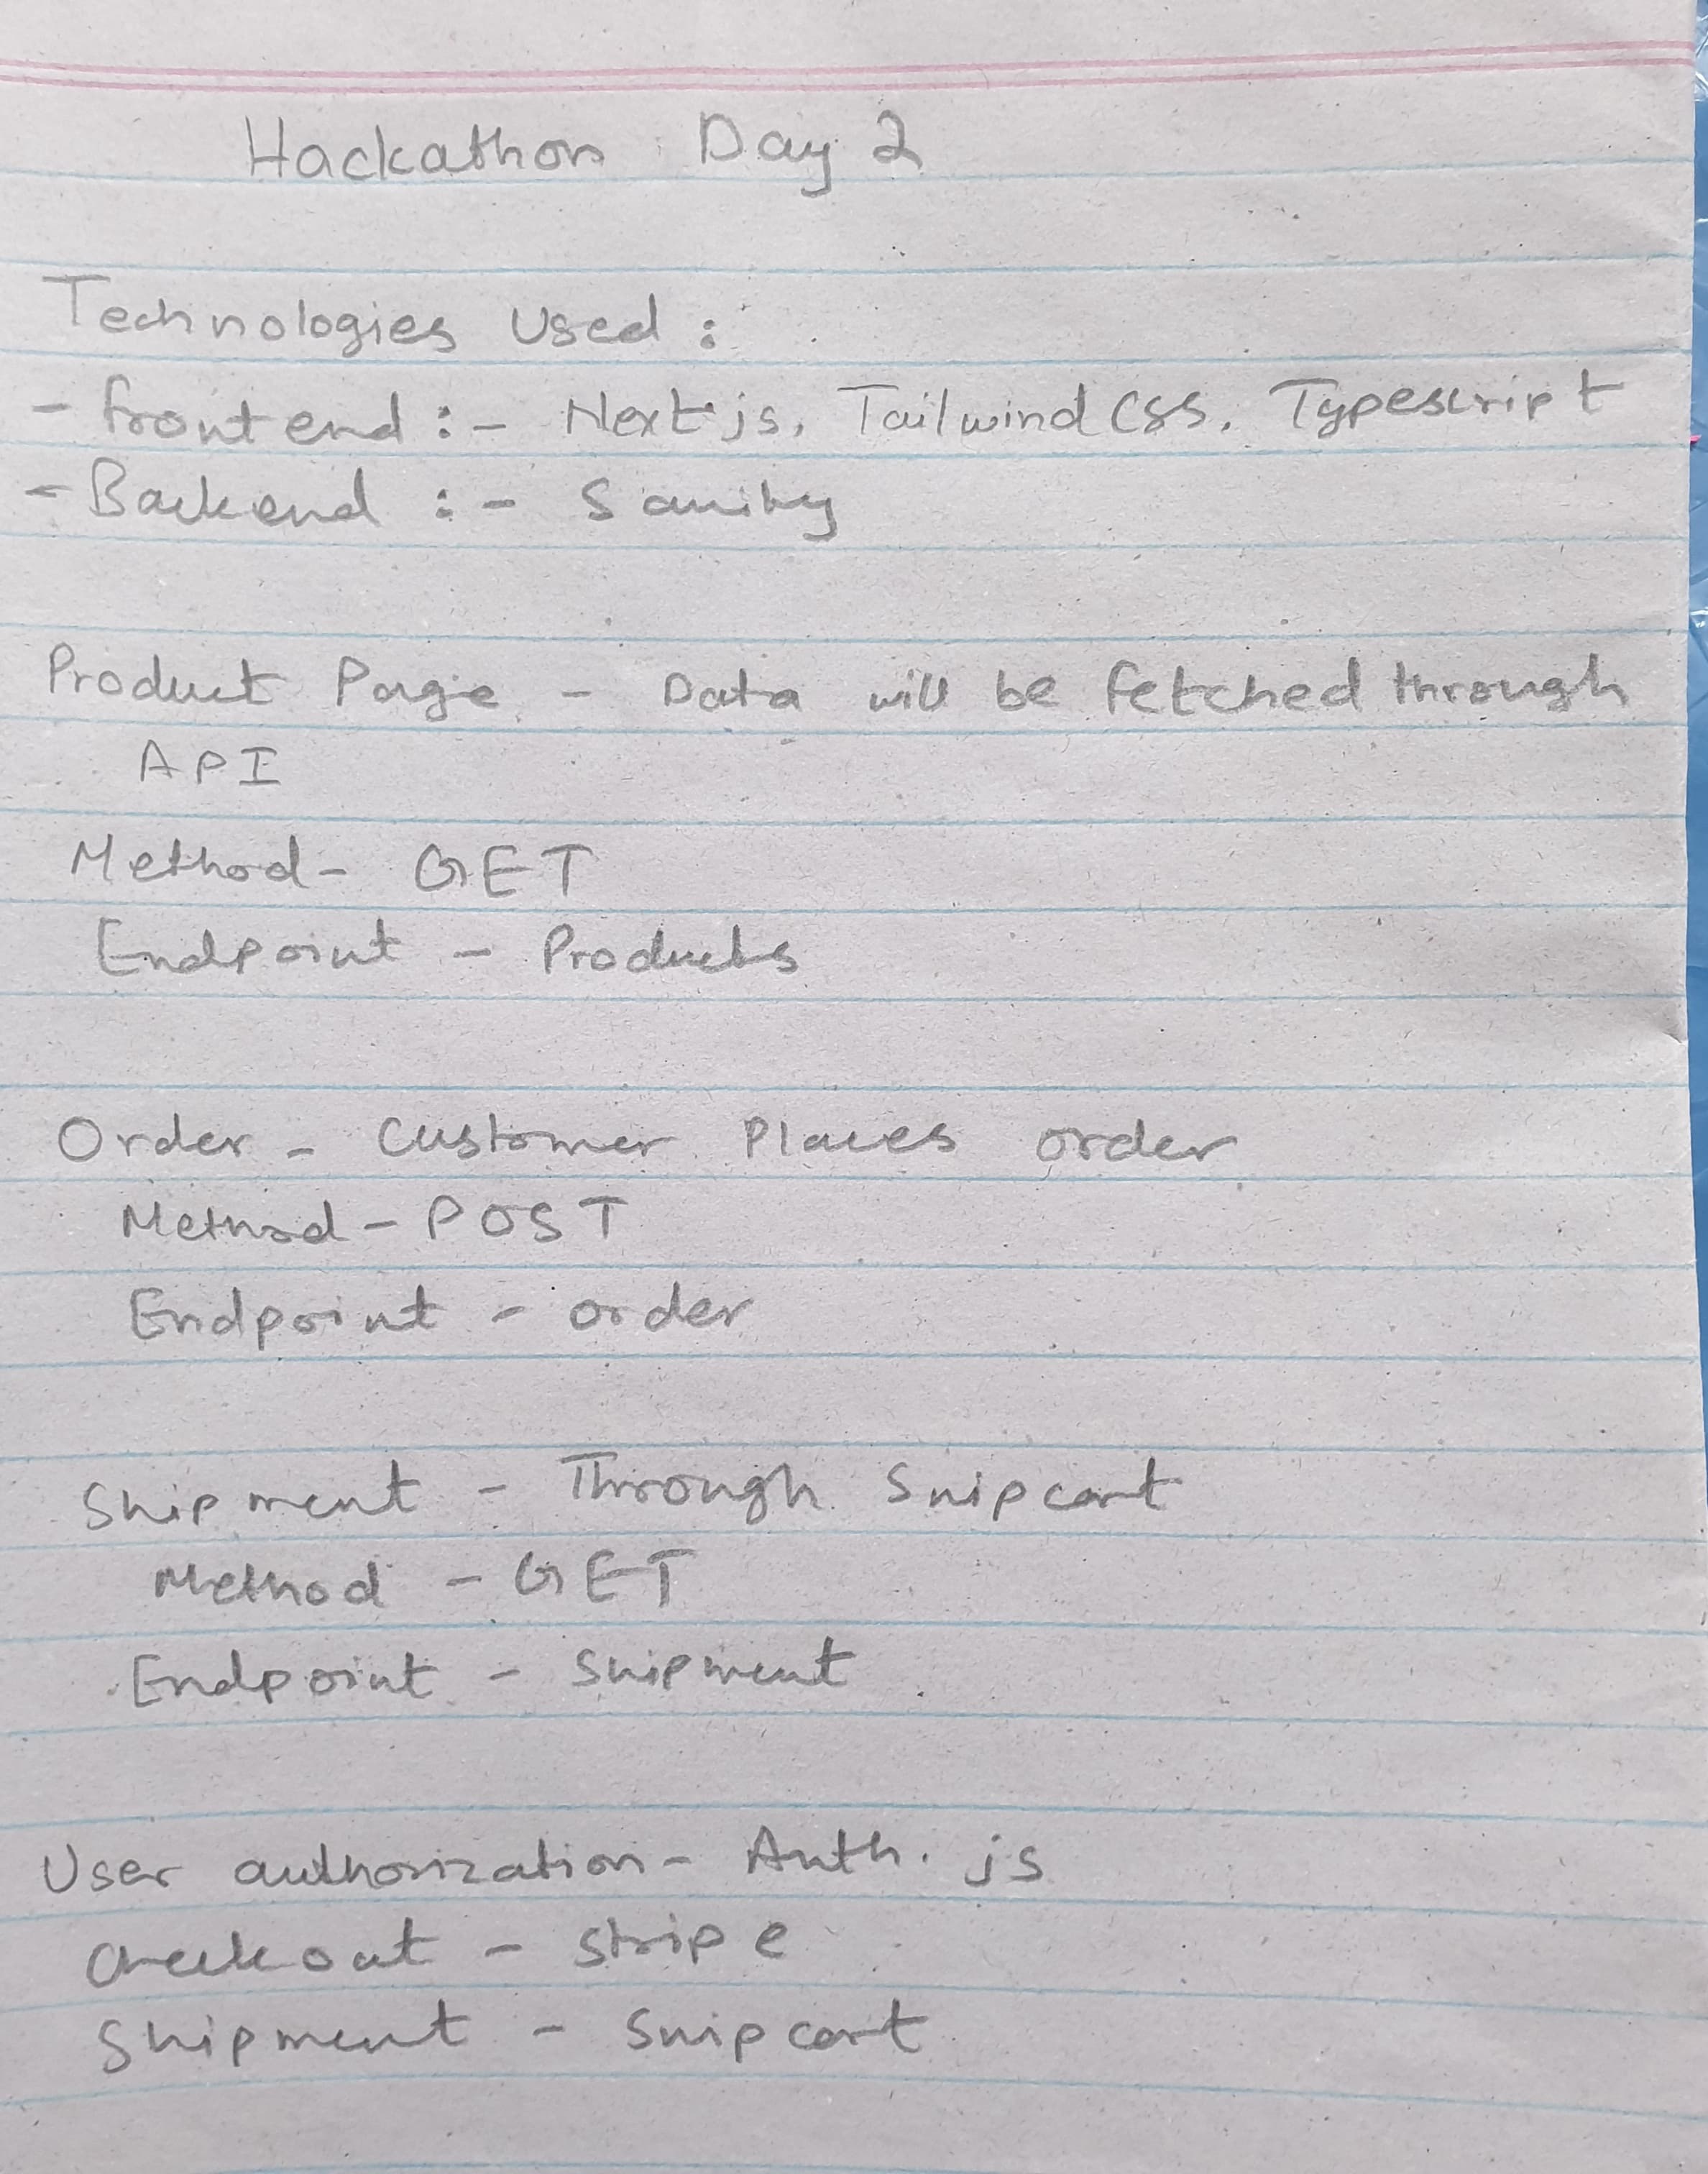 Hackathon Day 2
Technologies Used :
- frontend :- Next js, Tailwind CSS, Typescript
- Backend :- Sanity
Product Page - Data will be fetched through
API
Method - GET
Endpoint - Products
Order - Customer Places order
Method - POST
Endpoint - order
Shipment - Through Snipcart
Method - GET
Endpoint - Shipment
User authorization - Auth. js
Checkout - Stripe
Shipment - Snipcart